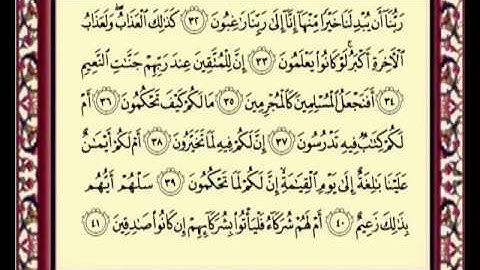 رَبُّنَآ أَن يُبْدِلَنَا خَيْرًا مِّنْهَآ إِنَّآ إِلَىٰ رَبِّنَا رَٰغِبُونَ ٣٢ كَذَٰلِكَ ٱلْعَذَابُ ۖ وَلَعَذَابُ
ٱلْءَاخِرَةِ أَكْبَرُ ۚ لَوْ كَانُوا۟ يَعْلَمُونَ ٣٣ إِنَّ لِلْمُتَّقِينَ عِندَ رَبِّهِمْ جَنَّٰتِ ٱلنَّعِيمِ
٣٤ أَفَنَجْعَلُ ٱلْمُسْلِمِينَ كَٱلْمُجْرِمِينَ ٣٥ مَا لَكُمْ كَيْفَ تَحْكُمُونَ ٣٦ أَمْ
لَكُمْ كِتَٰبٌ فِيهِ تَدْرُسُونَ ٣٧ إِنَّ لَكُمْ فِيهِ لَمَا تَخَيَّرُونَ ٣٨ أَمْ لَكُمْ أَيْمَٰنٌ
عَلَيْنَا بَٰلِغَةٌ إِلَىٰ يَوْمِ ٱلْقِيَٰمَةِ ۙ إِنَّ لَكُمْ لَمَا تَحْكُمُونَ ٣٩ سَلْهُمْ أَيُّهُم
بِذَٰلِكَ زَعِيمٌ ٤٠ أَمْ لَهُمْ شُرَكَآءُ فَلْيَأْتُوا۟ بِشُرَكَآئِهِمْ إِن كَانُوا۟ صَٰدِقِينَ ٤١